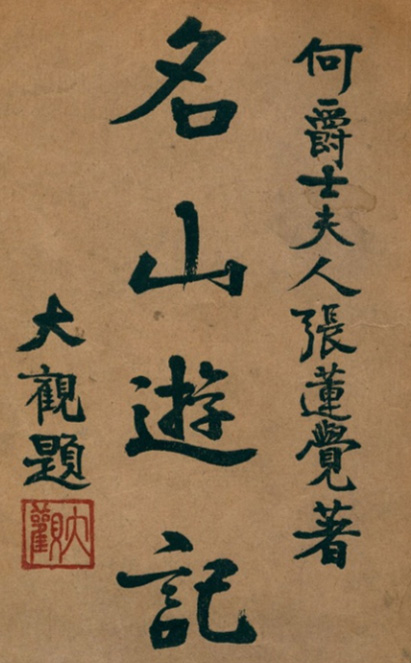 何爵士夫人張蓮覺著
名山遊記
大觀題
大觀